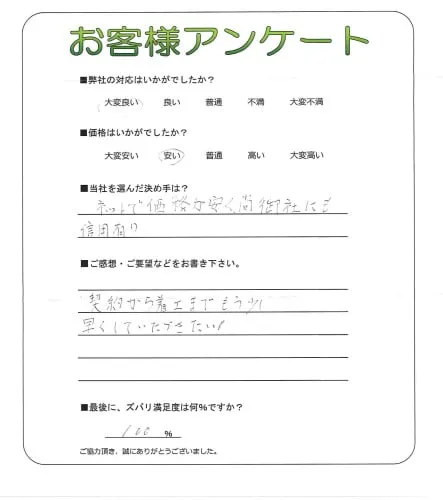 お客様アンケート
■弊社の対応はいかがでしたか?
大変良い 良い 普通 不満 大変不満
■価格はいかがでしたか?
大変安い 安い 普通 高い 大変高い
■当社を選んだ決め手は?
ネットで価格が安く尚御社にも
信用有り
■ご感想・ご要望などをお書き下さい。
契約から着工までもう少し
早くしていただきたい!
■最後に、ズバリ満足度は何%ですか?
100 %
ご協力頂き、誠にありがとうございました。